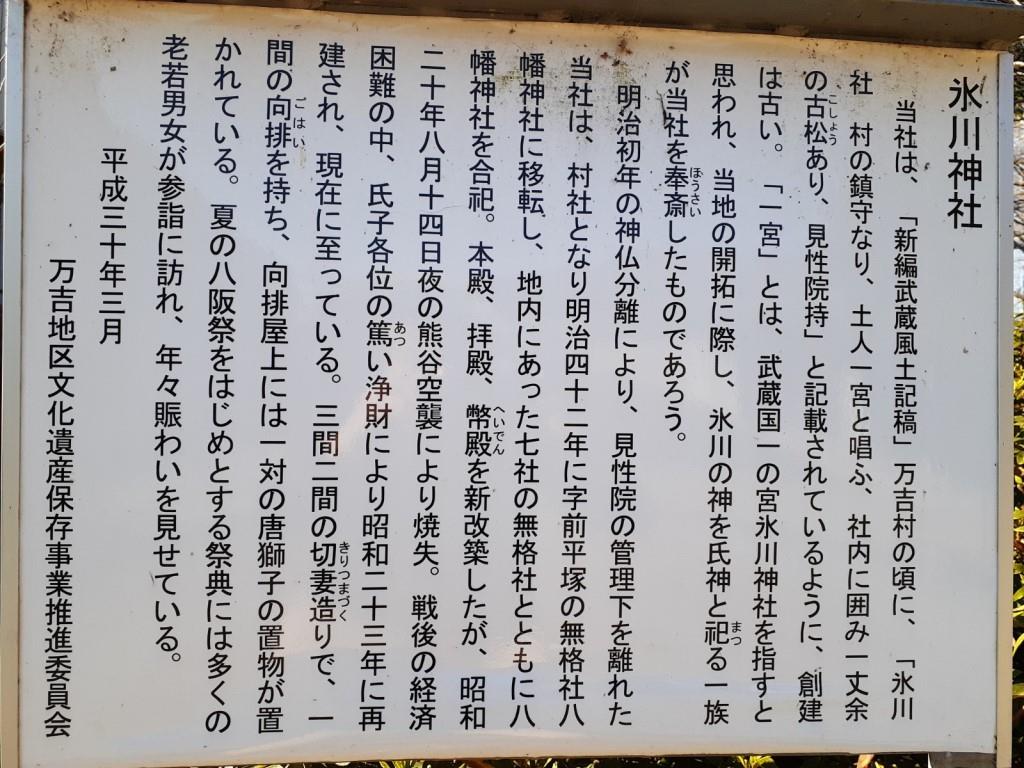 氷川神社
当社は、「新編武蔵風土記稿」万吉村の頃に、「氷川
社　村の鎮守なり、土人一宮と唱ふ、社内に囲み一丈余
の古松あり、見性院持」と記載されているように、創建
は古い。「一宮」とは、武蔵国一の宮氷川神社を指すと
思われ、当地の開拓に際し、氷川の神を氏神と祀る一族
が当社を奉斎したものであろう。
明治初年の神仏分離により、見性院の管理下を離れた
当社は、村社となり明治四十二年に字前平塚の無格社八
幡神社に移転し、地内にあった七社の無格社とともに八
幡神社を合祀。本殿、拝殿、幣殿を新改築したが、昭和
二十年八月十四日夜の熊谷空襲により焼失。戦後の経済
困難の中、氏子各位の篤い浄財により昭和二十三年に再
建され、現在に至っている。三間二間の切妻造りで、一
間の向排を持ち、向排屋上には一対の唐獅子の置物が置
かれている。夏の八阪祭をはじめとする祭典には多くの
老若男女が参詣に訪れ、年々賑わいを見せている。
平成三十年三月
万吉地区文化遺産保存事業推進委員会